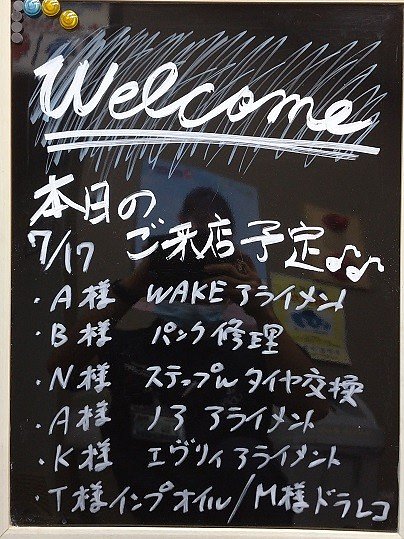 Welcome
本日の
7/17 ご来店予定♪♫
・A様 WAKE アライメント
・B様 パンク修理
・N様 ステップW タイヤ交換
・A様 ノア アライメント
・K様 エヴリィ アライメント
・T様インプオイル/M様ドラレコ